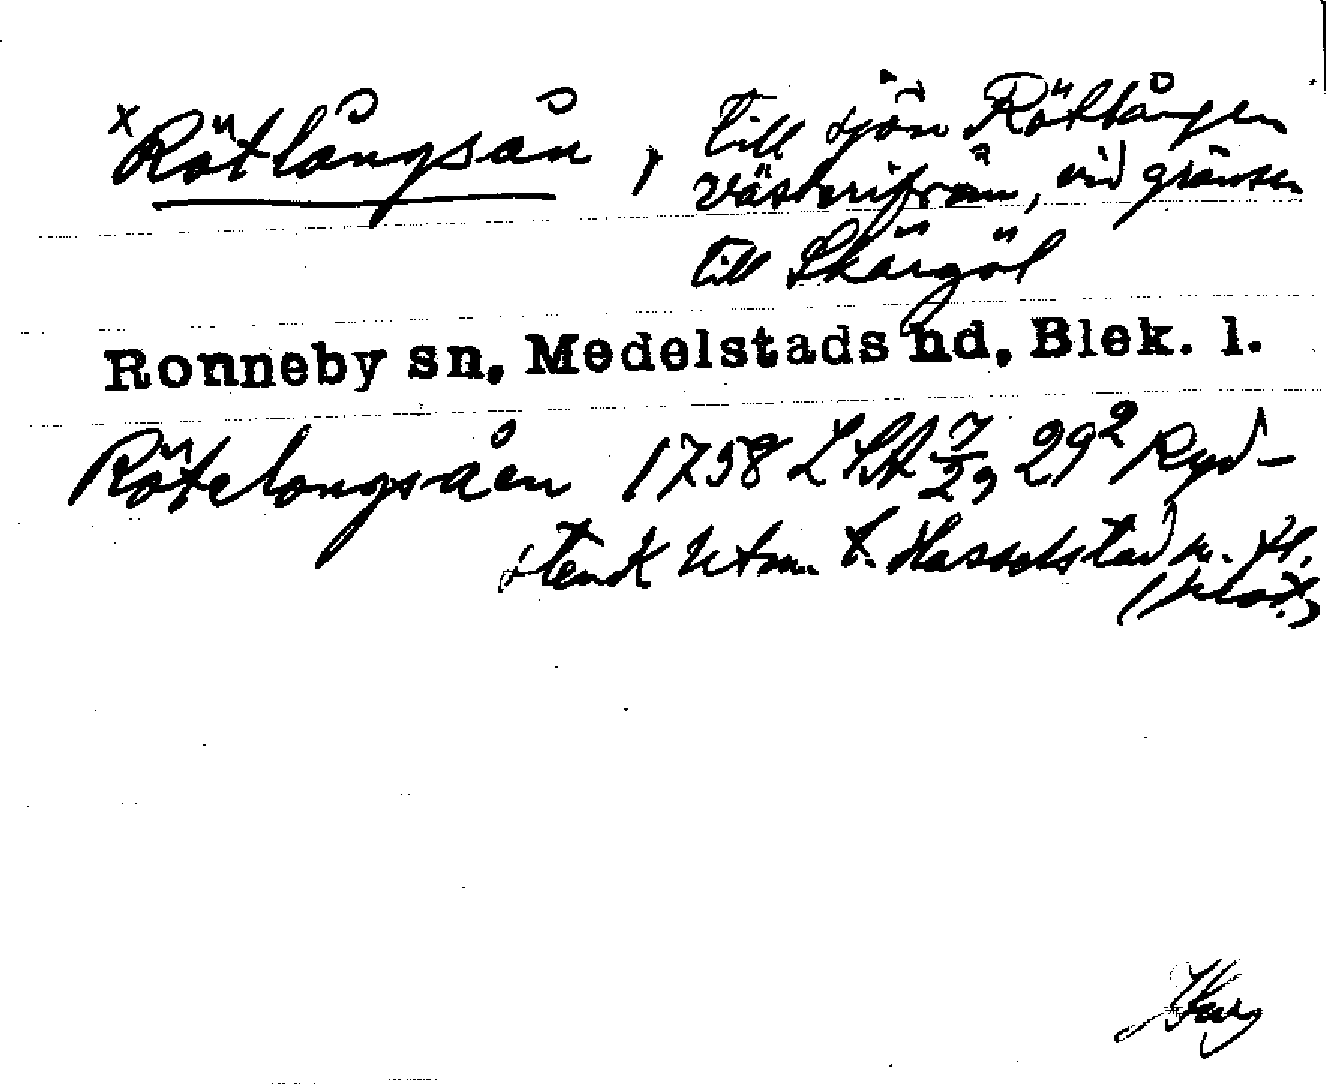 x Rötlångsån, till sjön Rötlången
västerifrån, vid gränsen
till Skärgöl
Ronneby sn, Medelstads hd, Blek. l.
Rötelongsåen 1758 LSA 7/29 29² Ryd-
stenK Utm. t. Hasselstad m. fl.